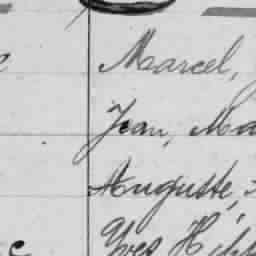 Marcel,
Jean, Ma
Auguste,
Yves Hipp